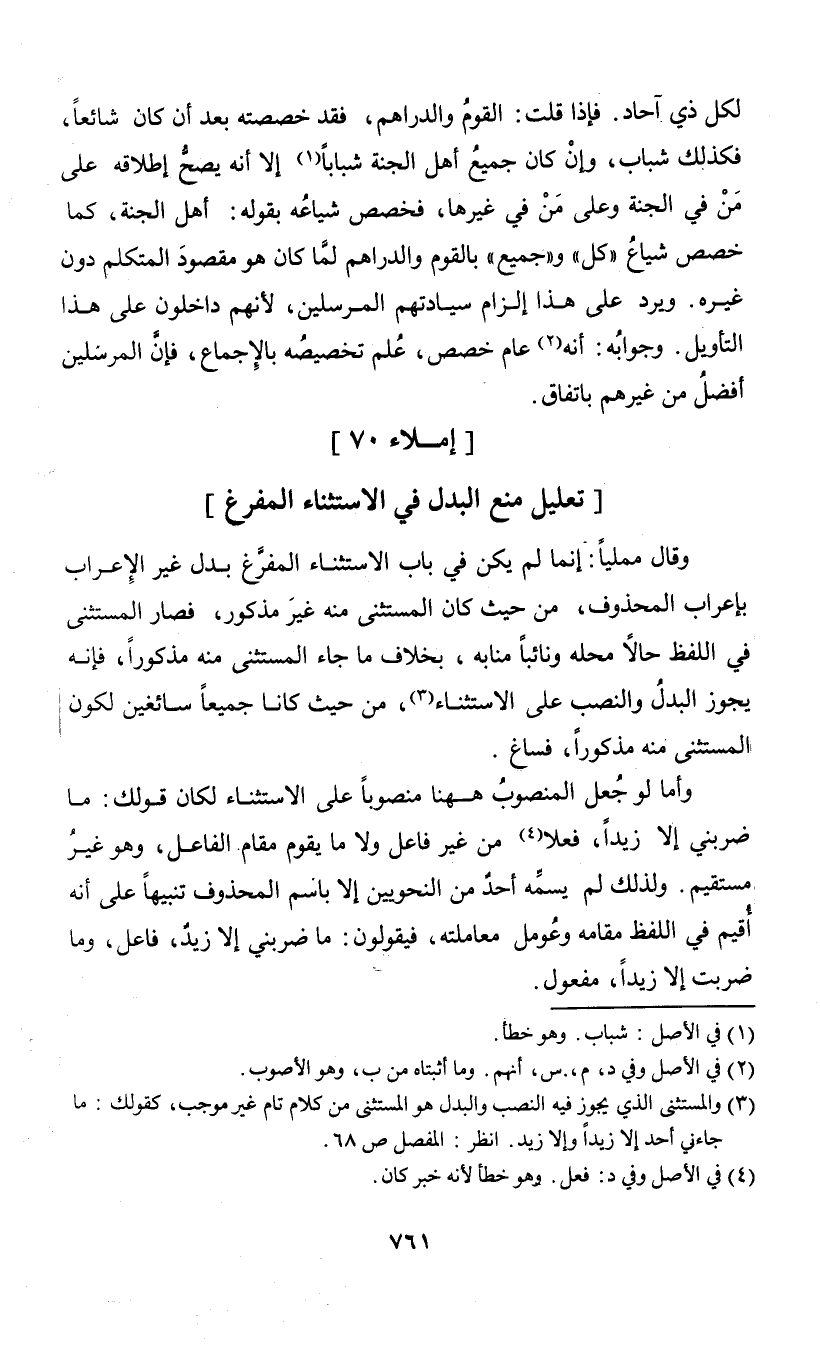 لكل ذي آحاد. فإذا قلت: القومُ والدراهم، فقد خصصته بعد أن كان شائعاً،
فكذلك شباب، وإنْ كان جميعُ أهل الجنة شباباً(١) إلا أنه يصحُّ إطلاقه على
مَنْ في الجنة وعلى مَنْ في غيرها، فخصص شياعُه بقوله: أهل الجنة، كما
خصص شياعُ «كل» و«جميع» بالقوم والدراهم لمَّا كان هو مقصودَ المتكلم دون
غيره. ويرد على هذا إلزام سيادتهم المرسلين، لأنهم داخلون على هذا
التأويل. وجوابُه: أنه(٢) عام خصص، عُلم تخصيصُه بالإِجماع، فإنَّ المرسَلين
أفضلُ من غيرهم باتفاق.
[ إملاء ٧٠ ]
[ تعليل منع البدل في الاستثناء المفرغ ]
وقال ممليأً: إنما لم يكن في باب الاستثناء المفرَّغ بدل غير الإِعراب
بإعراب المحذوف، من حيث كان المستثنى منه غيرَ مذكور، فصار المستثنى
في اللفظ حالاً محله ونائباً منابه ، بخلاف ما جاء المستثنى منه مذكوراً، فإنه
يجوز البدلُ والنصب على الاستثناء(٣)، من حيث كانا جميعاً سائغين لكون
المستثنى منه مذكوراً، فساغ .
وأما لو جُعل المنصوبُ ههنا منصوباً على الاستثناء لكان قولك: ما
ضربني إلا زيداً، فعلا(٤) من غير فاعل ولا ما يقوم مقام الفاعل، وهو غيرُ
مستقيم. ولذلك لم يسمِّه أحدٌ من النحويين إلا باسم المحذوف تنبيهاً على أنه
أُقيم في اللفظ مقامه وعُومل معاملته، فيقولون: ما ضربني إلا زيدٌ، فاعل، وما
ضربت إلا زيداً، مفعول.
(١) في الأصل : شباب. وهو خطأ.
(٢) في الأصل وفي د، م، س، أنهم. وما أثبتاه من ب، وهو الأصوب.
(٣) والمستثنى الذي يجوز فيه النصب والبدل هو المستثنى من كلام تام غير موجب، كقولك : ما
جاءني أحد إلا زيداً وإلا زيد. انظر : المفصل ص ٦٨.
(٤) في الأصل وفي د: فعل. وهو خطأ لأنه خبر كان.
٧٦١